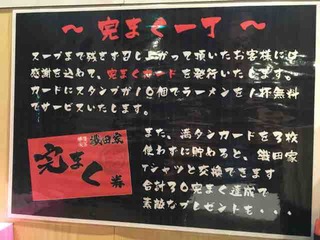 ～ 完まく一丁 ～
スープまで残さず召し上がって頂いたお客様には
感謝を込めて、完まくカードを発行いたします。
カードにスタンプが10個でラーメンを1杯無料
でサービスいたします。
織田家
完まく
券
また、満タンカードを3枚
使わずに貯わると、織田家
Tシャツと交換できます
合計30完まく達成で
素敵なプレゼントを・・・